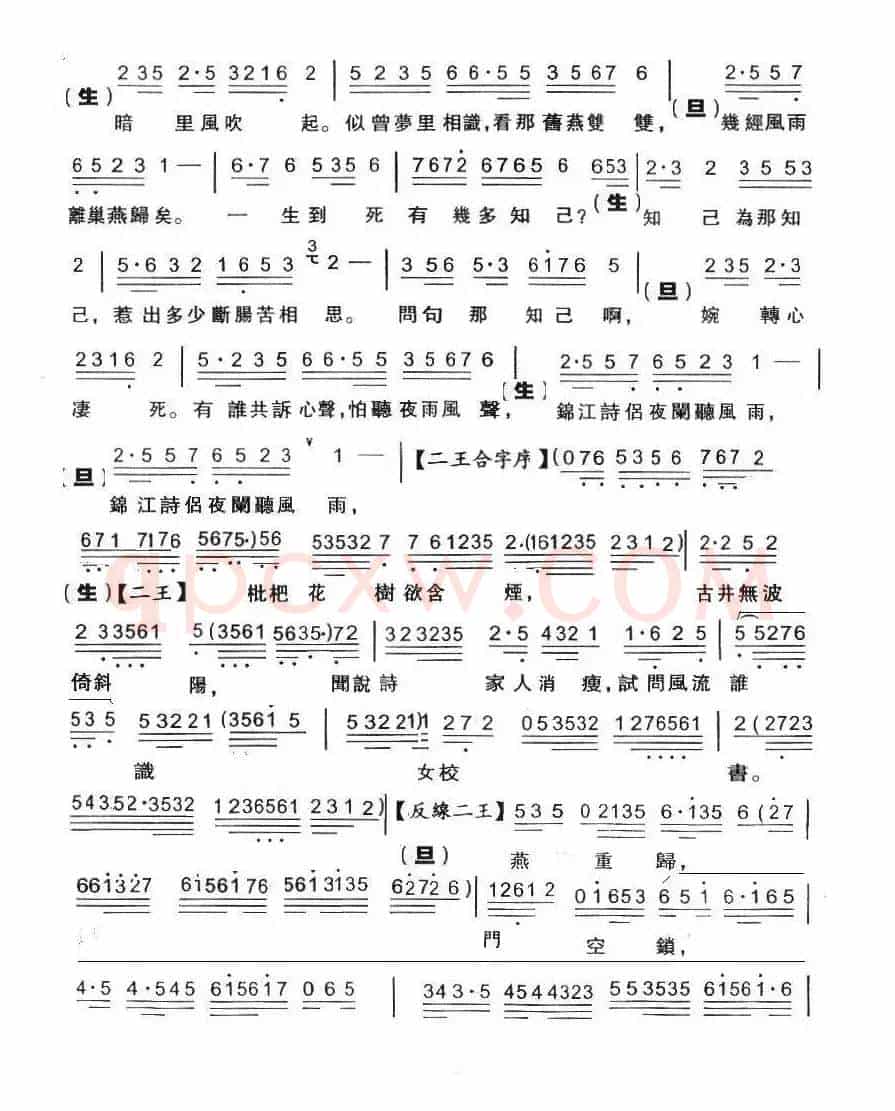 2 3 5 2·5 3 2 1 6 2 | 5 2 3 5 6 6·5 5 3 5 6 7 6 | 2·5 5 7
(生) 暗 里 風 吹 起。似 曾 夢 里 相 識, 看 那 舊 燕 雙 雙, (旦) 幾 經 風 雨
6 5 2 3 1 — | 6·7 6 5 3 5 6 | 7 6 7 2 6 7 6 5 6 6 5 3 | 2·3 2 3 5 5 3
離 巢 燕 歸 矣。 一 生 到 死 有 幾 多 知 己? (生) 知 己 為 那 知
2 | 5·6 3 2 1 6 5 3 3 2 — | 3 5 6 5·3 6 1 7 6 5 | 2 3 5 2·3
己, 惹 出 多 少 斷 腸 苦 相 思。 問 句 那 知 己 啊, (旦) 婉 轉 心
2 3 1 6 2 | 5·2 3 5 6 6·5 5 3 5 6 7 6 | 2·5 5 7 6 5 2 3 1 — |
淒 死。有 誰 共 訴 心 聲, 怕 聽 夜 雨 風 聲, (生) 錦 江 詩 侶 夜 闌 聽 風 雨,
2·5 5 7 6 5 2 3 1 — | 【二王合字序】(0 7 6 5 3 5 6 7 6 7 2
(旦) 錦 江 詩 侶 夜 闌 聽 風 雨,
6 7 1 7 1 7 6 5 6 7 5·) 5 6 5 3 5 3 2 7 | 7 6 1 2 3 5 2·(1 6 1 2 3 5 2 3 1 2) | 2·2 5 2
(生)【二王】 枇 杷 花 樹 欲 含 煙, 古 井 無 波
2 3 3 5 6 1 5 (3 5 6 1 5 6 3 5·) 7 2 | 3 2 3 2 3 5 2·5 4 3 2 1 1·6 2 5 | 5 5 2 7 6
倚 斜 陽, 聞 說 詩 家 人 消 瘦, 試 問 風 流 誰
5 3 5 5 3 2 2 1 (3 5 6 1 5 | 5 3 2 2 1) 1 2 7 2 0 5 3 5 3 2 1 2 7 6 5 6 1 | 2 (2 7 2 3
識 女 校 書。
5 4 3 5 2·3 5 3 2 1 2 3 6 5 6 1 2 3 1 2) | 【反線二王】 5 3 5 0 2 1 3 5 6·1 3 5 6 (2 7 |
(旦) 燕 重 歸,
6 6 1 3 2 7 6 1 5 6 1 7 6 5 6 1 3 1 3 5 6 2 7 2 6) | 1 2 6 1 2 0 1 6 5 3 6 5 1 6·1 6 5 |
門 空 鎖,
4·5 4·5 4 5 6 1 5 6 1 7 0 6 5 | 3 4 3·5 4 5 4 4 3 2 3 5 5 3 5 3 5 6 1 5 6 1·6 |
qpcxw.COM